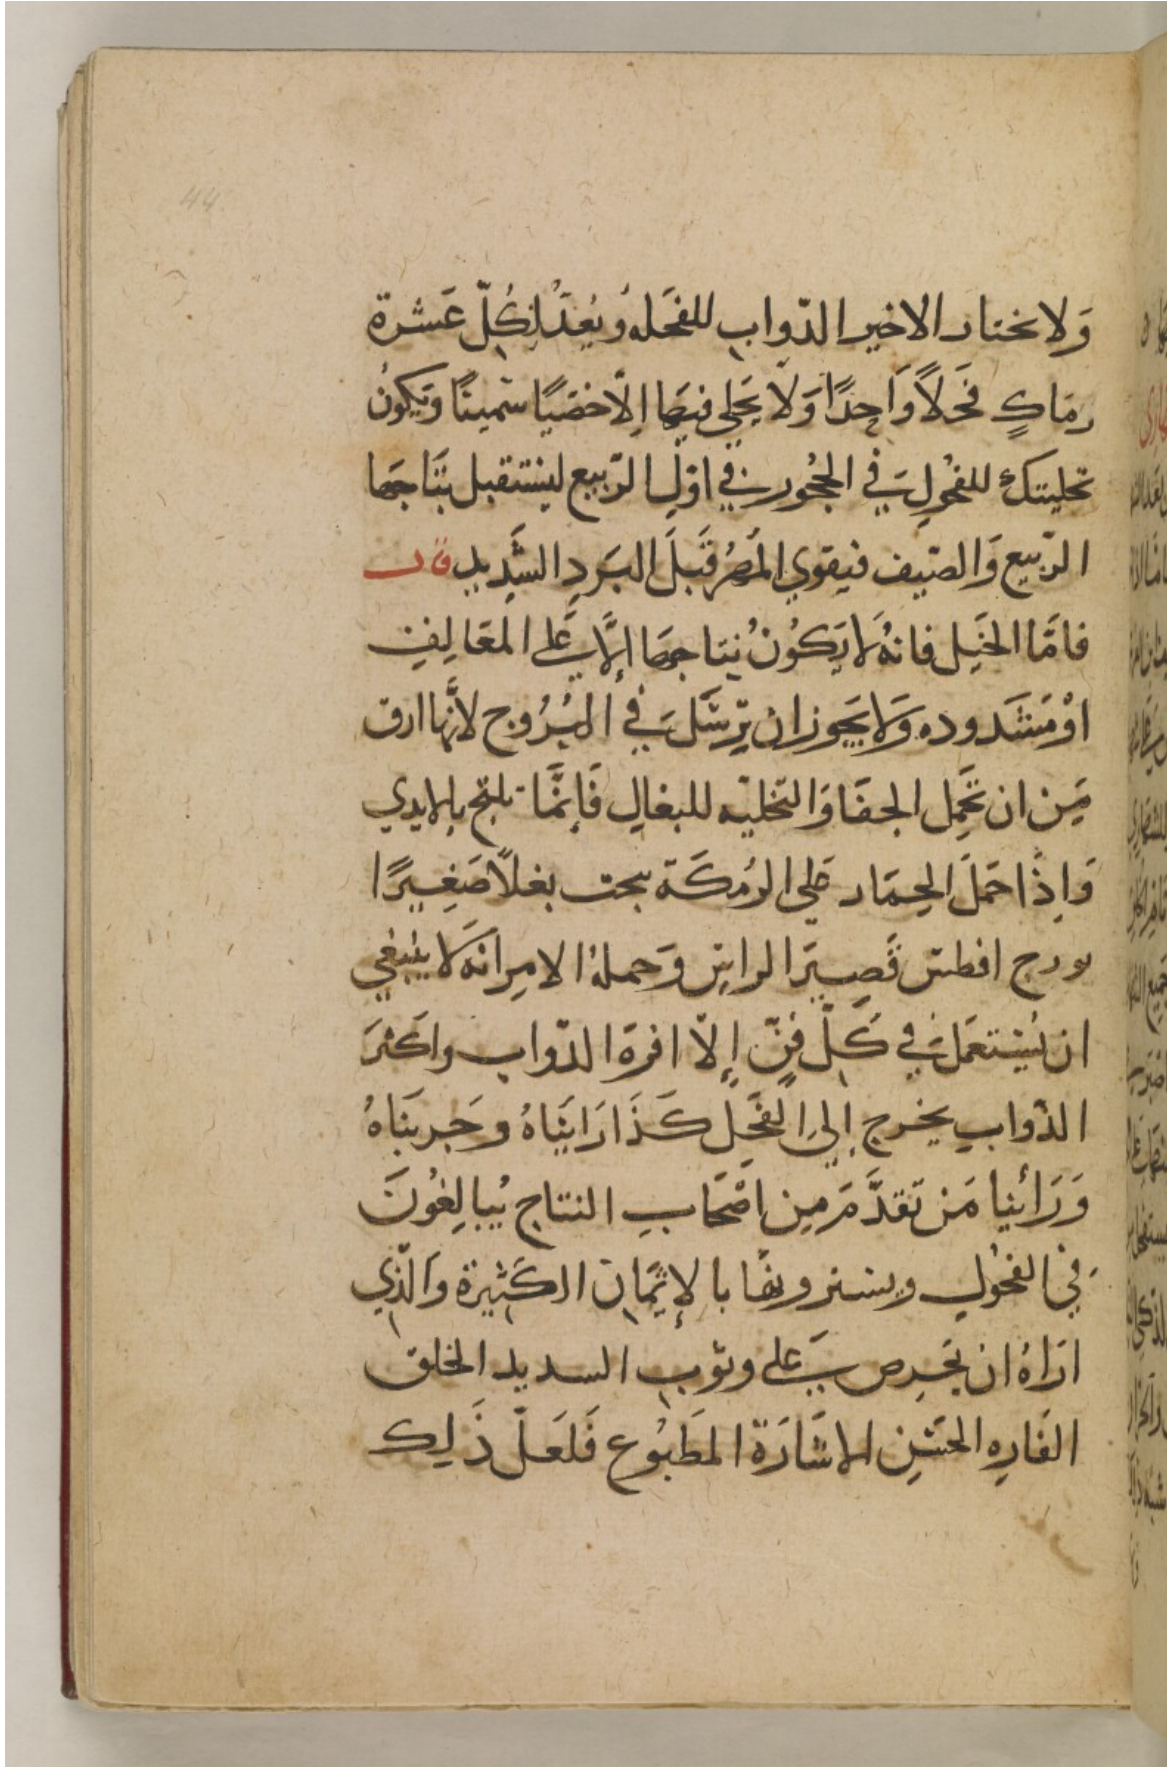 وَلا نختار الا خير الدّواب للفحله وُيُعدّ لِكُلّ عَشرة
رمَاكٍ فحَلاً وَاحِدًا وَلا يَخلي فيهَا اِلّا خصَيًا سَمينًا وَيكونُ
تخليتكَ للفحُول في الحُجُور في اوّل الرّبيع ليستقبل بنَتاجهَا
الرّبيع وَالصّيف فيقوي المُهرُ قبلَ البَردِ الشَدِيد قال
فامَّا الخيل فانهُ لا يَكوُنُ نِتاجهَا إلَّا عَلى المعَالِفِ
اوْ مَشَدوده وَلا يَجوز ان يُرسَل في المُرُوج لأنَّها ارق
مِن ان تحَمل الجفَا وَالتخليه للبغالِ فَإنمَّا تلقح بالايدي
وَاِذا حَملَ الحِمَار على الرمكَة نجت بغلاً صَغِيرًا
افطس قَصِيرَ الراس وَحملهُ الامر انهَ لا ينبغي
ان يُستعمَل في كَلّ فنّ إلّا افرهَ الدّواب واكثرَ
الدّوابِ يخرج إلى الفحَل كَذَا رَايَناهُ وجَربنَاهُ
وَرَأينا مَن تَقدَّمَ مِن اصْحَابِ النتاج يُبالِغُونَ
في الفحُول ويشترونهَا بالاثمَان الكثيرة وَالّذي
ارَاهُ ان يَحرِص عَلى وثوب السديد الخلق
الفَارِه الحَسَنِ الاشَارَة المَطبُوع فَلعَلّ ذَلِك